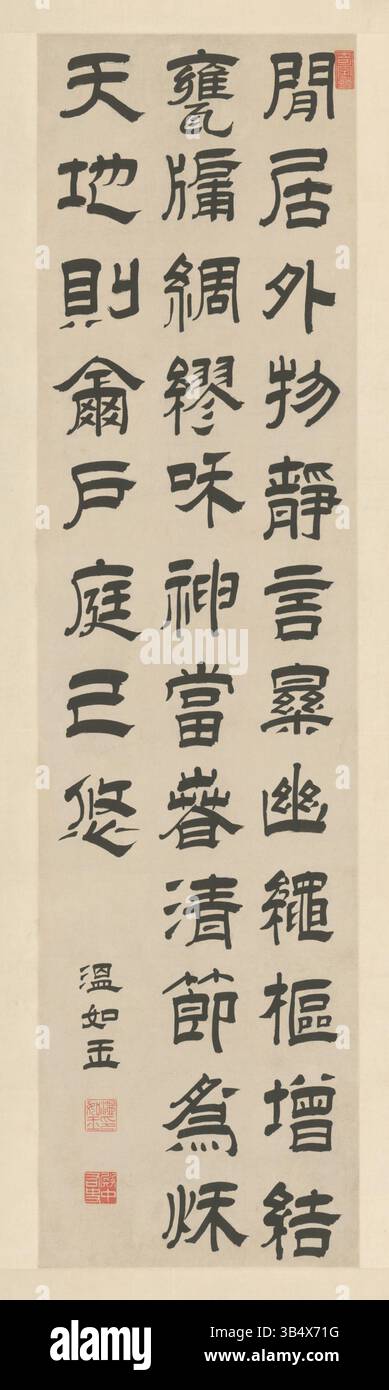 閒居外物靜言幽繩樞增結
甕牖綢繆咊神當春清節爲秌
天地則爾戶庭已悠
溫如玉
alamy
Image ID: 3B4X71G
www.alamy.com